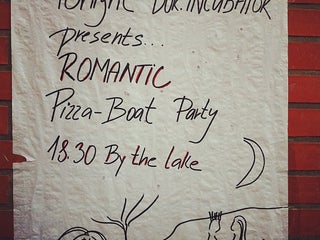 Tonight DOK.INCUBATOR
presents...
ROMANTIC
Pizza-Boat Party
18.30 By the lake